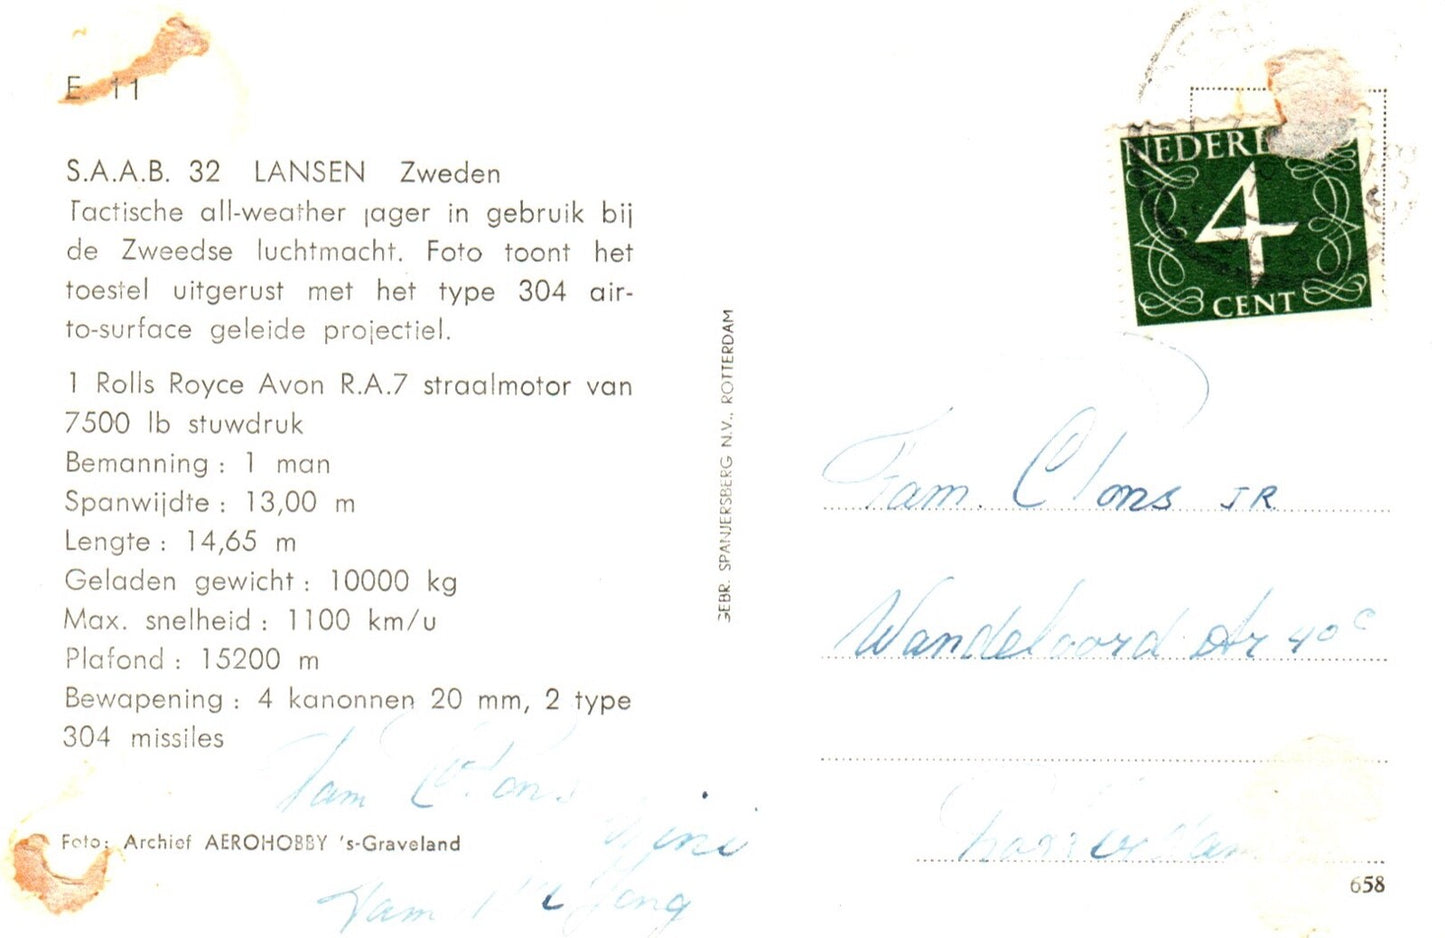 E. 11
S.A.A.B. 32 LANSEN Zweden
Tactische all-weather jager in gebruik bij
de Zweedse luchtmacht. Foto toont het
toestel uitgerust met het type 304 air-
to-surface geleide projectiel.
1 Rolls Royce Avon R.A.7 straalmotor van
7500 lb stuwdruk
Bemanning : 1 man
Spanwijdte : 13,00 m
Lengte : 14,65 m
Geladen gewicht : 10000 kg
Max. snelheid : 1100 km/u
Plafond : 15200 m
Bewapening : 4 kanonnen 20 mm, 2 type
304 missiles
Fam
Foto: Archief AEROHOBBY 's-Graveland
Fam de Jong
GEBR. SPANJERSBERG N.V., ROTTERDAM
NEDERL
4
CENT
Fam. Clons JR.
40 c
658